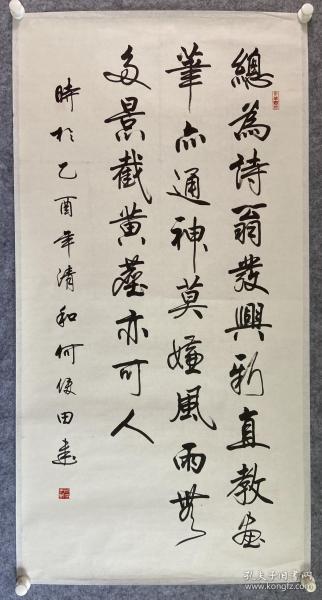 總為詩翁發興新直教畫
筆亦通神莫嫌風雨無
多景截黃蘆亦可人
時於乙酉年清和何俊田書
孔夫子旧书网